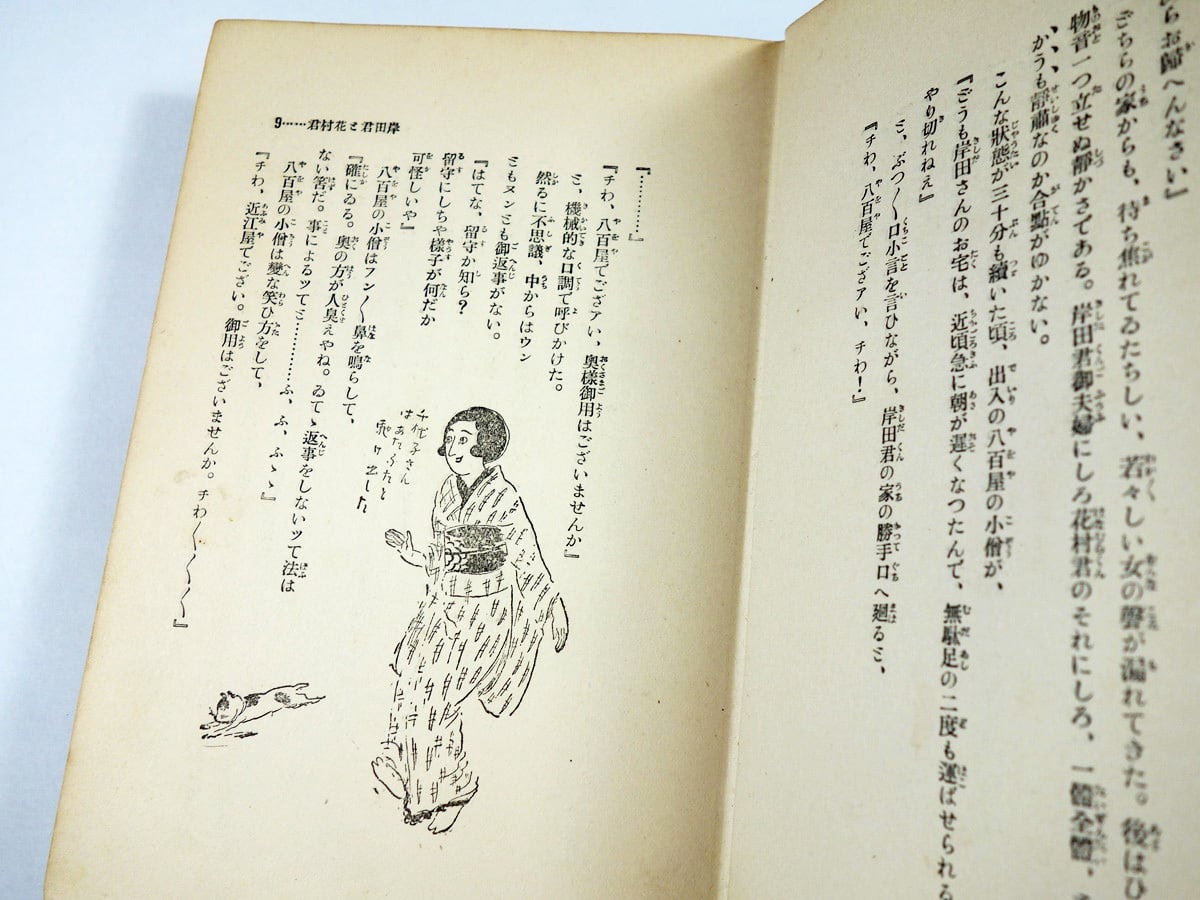 らお歸へんなさい』
ごちらの家からも、待ち焦れてゐたらしい、若々しい女の聲が漏れてきた。後はひ
物音一つ立せぬ靜かさである。岸田君御夫婦にしろ花村君のそれにしろ、一體全體、
かうも靜肅なのか合點がゆかない。
こんな狀態が三十分も續いた頃、出入の八百屋の小僧が、
『ごうも岸田さんのお宅は、近頃急に朝が遲くなつたんで、無駄足の二度も運ばせられる
やり切れねえ』
ミ、ぶつ〱口小言を言ひながら、岸田君の家の勝手口へ廻るミ、
『チわ、八百屋でござアい、チわ！』
9……岸田君ミ花村君
『…………』
『チわ、八百屋でござアい、奧樣御用はございませんか』
ミ、機械的な口調で呼びかけた。
然るに不思議、中からはウン
ミもヌンミも御返事がない。
『はてな、留守か知ら？
留守にしちや樣子が何だか
可怪しいや』
八百屋の小僧はフン〱鼻を鳴らして、
『確にゐる。奧の方が人臭えやね。ゐてゝ返事をしないッて法は
ない筈だ。事によるッてミ…………ふ、ふ、ふゝ』
八百屋の小僧は變な笑ひ方をして、
『チわ、近江屋でござい。御用はございませんか。チわ〱〱〱』
千代子さん
はあたふたと
飛け出した